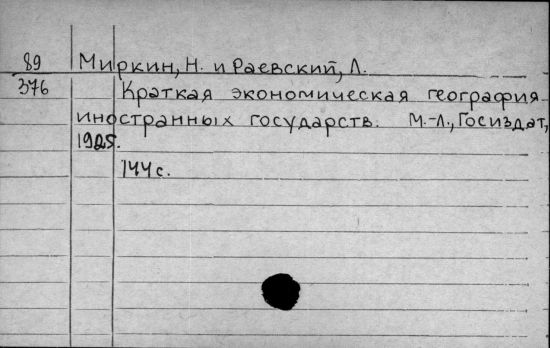 89 Миркин, Н. и Раевский, Л.
376 Краткая экономическая география
иностранных государств. М.-Л., Госиздат,
1925.
144 с.